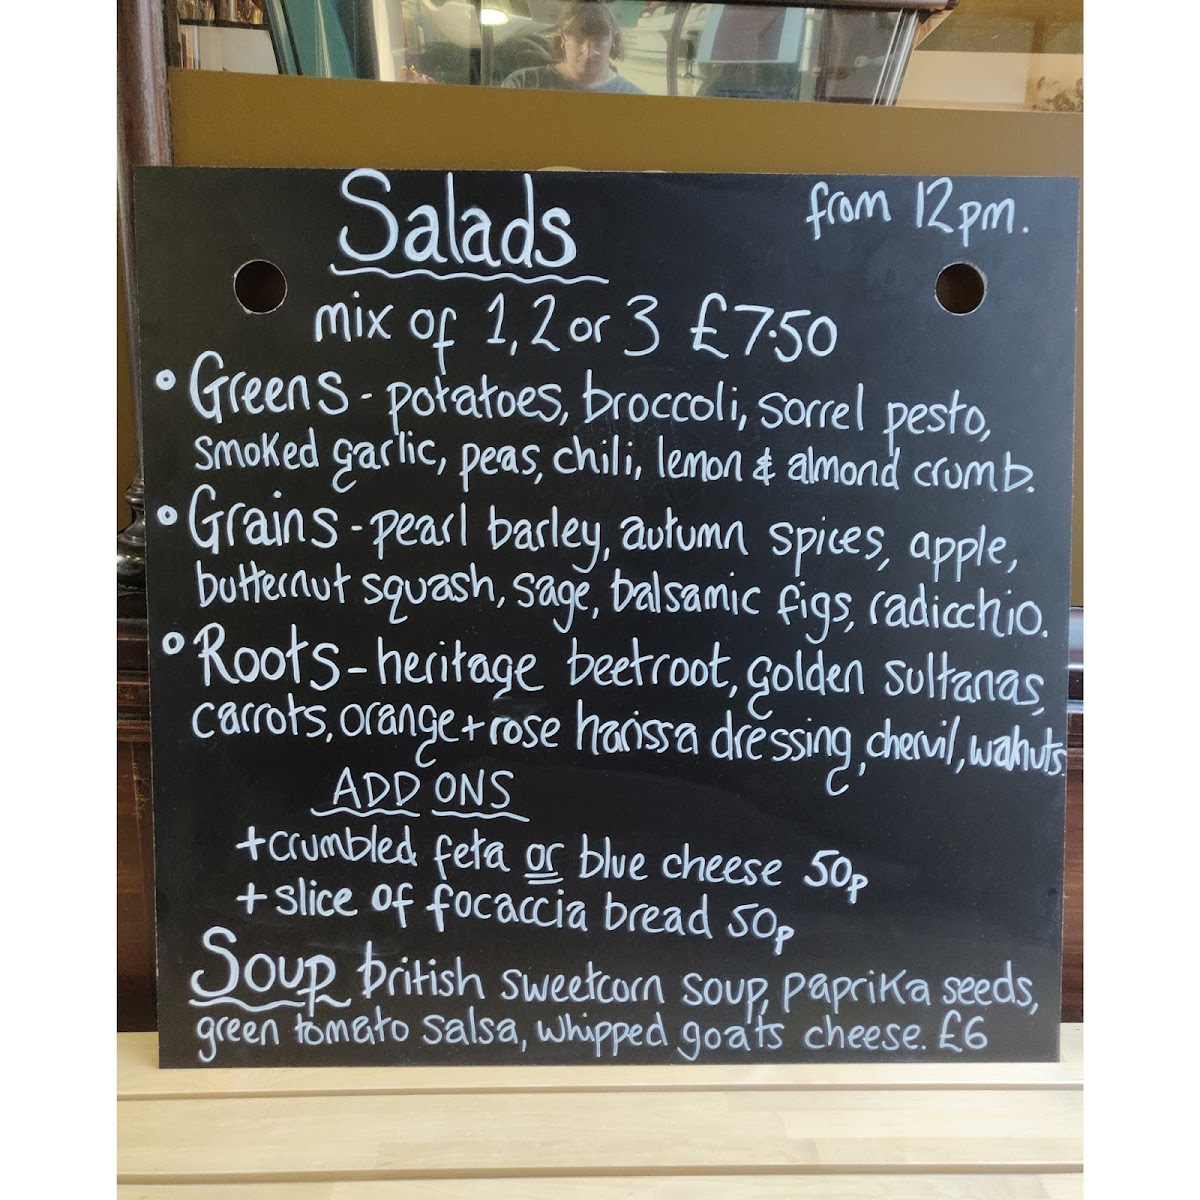 Salads
from 12pm.
mix of 1, 2 or 3 £7.50
• Greens - potatoes, broccoli, sorrel pesto,
smoked garlic, peas, chili, lemon & almond crumb.
• Grains - pearl barley, autumn spices, apple,
butternut squash, sage, balsamic figs, radicchio.
• Roots - heritage beetroot, golden sultanas,
carrots, orange + rose harissa dressing, chervil, walnuts.
ADD ONS
+ crumbled feta or blue cheese 50p
+ slice of focaccia bread 50p
Soup british sweetcorn soup, paprika seeds,
green tomato salsa, whipped goats cheese. £6